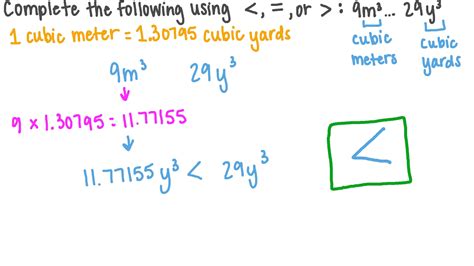 Complete the following using <, =, or > : 9m³... 29y³
1 cubic meter = 1.30795 cubic yards
cubic meters
cubic yards
9m³ 29y³
9 x 1.30795 = 11.77155
11.77155 y³ < 29y³
<